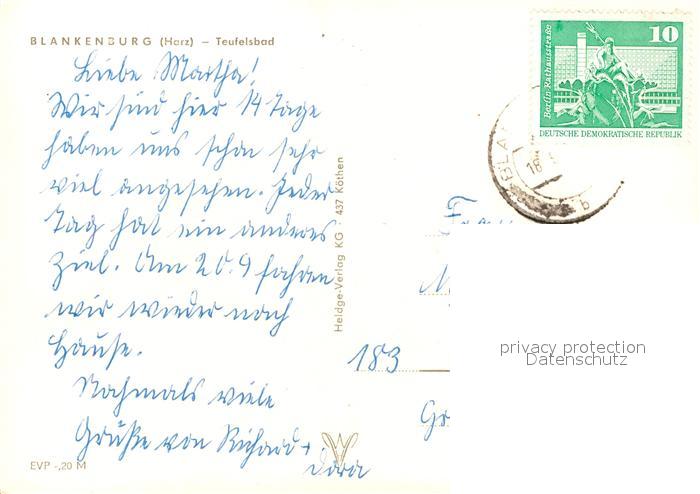 BLANKENBURG (Harz) – Teufelsbad
Liebe Martha!
Wir sind hier 14 Tage
haben uns schon sehr
viel angesehen. Jeder
Tag hat ein anderes
Ziel. Am 20.9 fahren
wir wieder nach
Hause.
Nochmals viele
Grüße von Richard +
Dora
EVP -,20 M
Heldge-Verlag KG 437 Köthen
10
Berlin, Rathausstraße
DEUTSCHE DEMOKRATISCHE REPUBLIK
BLA
18
b
F
M
183
Gr
privacy protection
Datenschutz